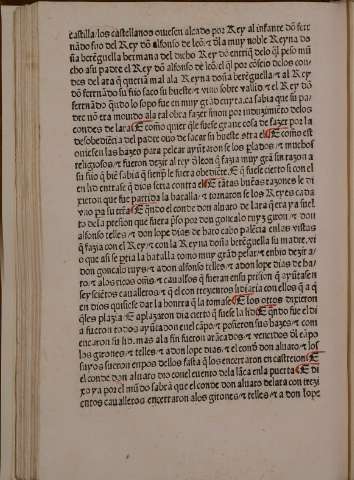 castilla: los castellanos ouiesen alçado por Rey al infante dõ ferr
nãdo fijo del Rey dõ alfonso de leõ: ⁊ dla muy noble Reyna do
ña berẽguella hermana del dicho Rey dõ enriq̃ delo ql̃ peso mu
cho asu padre el Rey dõ alfonso de leõ. el ql̃ por cõsejo delos con
des del ara q̃ queriã mal ala Reyna doña berẽguella: ⁊ al Rey
dõ ferrnãdo su fijo saco su hueste ⁊ vino sobre vallid ⁊ el Rey dõ
ferrnãdo quãdo lo sopo fue en muy grãd cuyta. ca sabia que su pa-
dre nõ era mouido ala tal obra fazer sinon por induzimiẽto delos
condes de lara. E como quier q̃le fuese graue cosa de fazer por la
desobediẽcia del padre ouo de sacar su hueste otra el. E como est
ouiesen las hazes para pelear ayũtarõ se los plados ⁊ muchos
religiosos ⁊ fueron dezir al rey dõ leon q̃ fazia muy grã sin razon a
su fijo q̃ biẽ sabia q̃ siemp̃ le fuera obediẽte. E q̃ fuese cierto si con el
en lid entrase q̃ dios seria contra el. E tãtas buẽas razones le di
xieron que fue partida la batalla: ⁊ tornaron se los Reyes cada
vno pa su trr̃a. E qñdo el conde don aluaro de lara q̃ era ya suel
to dela presion que fuera p̃so por don gonçalo ruyz giron ⁊ don
alfonso telles ⁊ don lope dias de haro cabo palẽcia en las vistas
q̃ fazia con el Rey ⁊ con la Reyna doña berẽguella su madre. vi
o que asi se p̃tia la batalla tomo muy grãd pesar ⁊ enbio dezir a
don gonçalo ruys ⁊ a don alfonso telles ⁊ a don lope dias de ha-
ro. ⁊ a los ricos omẽs ⁊ cauall'os q̃ fueran en su prision q̃ ayũtasen
sey seiẽtos caualleros. ⁊ q̃ el con trezientos lidiaria con ellos q̃ a q̃
en dios quisiese dar la honrra q̃ la tomase. E los otros dixieron
q̃les plazia. E aplazaron dia cierto q̃ fuese la lid. E qñdo fue el di
a fueron todos ayũtados en el cãpo. ⁊ posieron sus hazes ⁊ com
ençaron su lid. mas ala fin fueron arãcados ⁊ vencidos dl cãpo
los girones ⁊ telles ⁊ a don lope dias. ⁊ el conde don aluaro ⁊ los
suyos fueron en pos dellos fasta q̃ los encerraron en castreion. E
el conde don aluaro dio con el cuento dela lãça en la puerta. E di
xo ya por el mũdo sabrã que el conde don aluaro de lara con trezi
entos caualleros encerraron alos girones ⁊ telles ⁊ a don lope